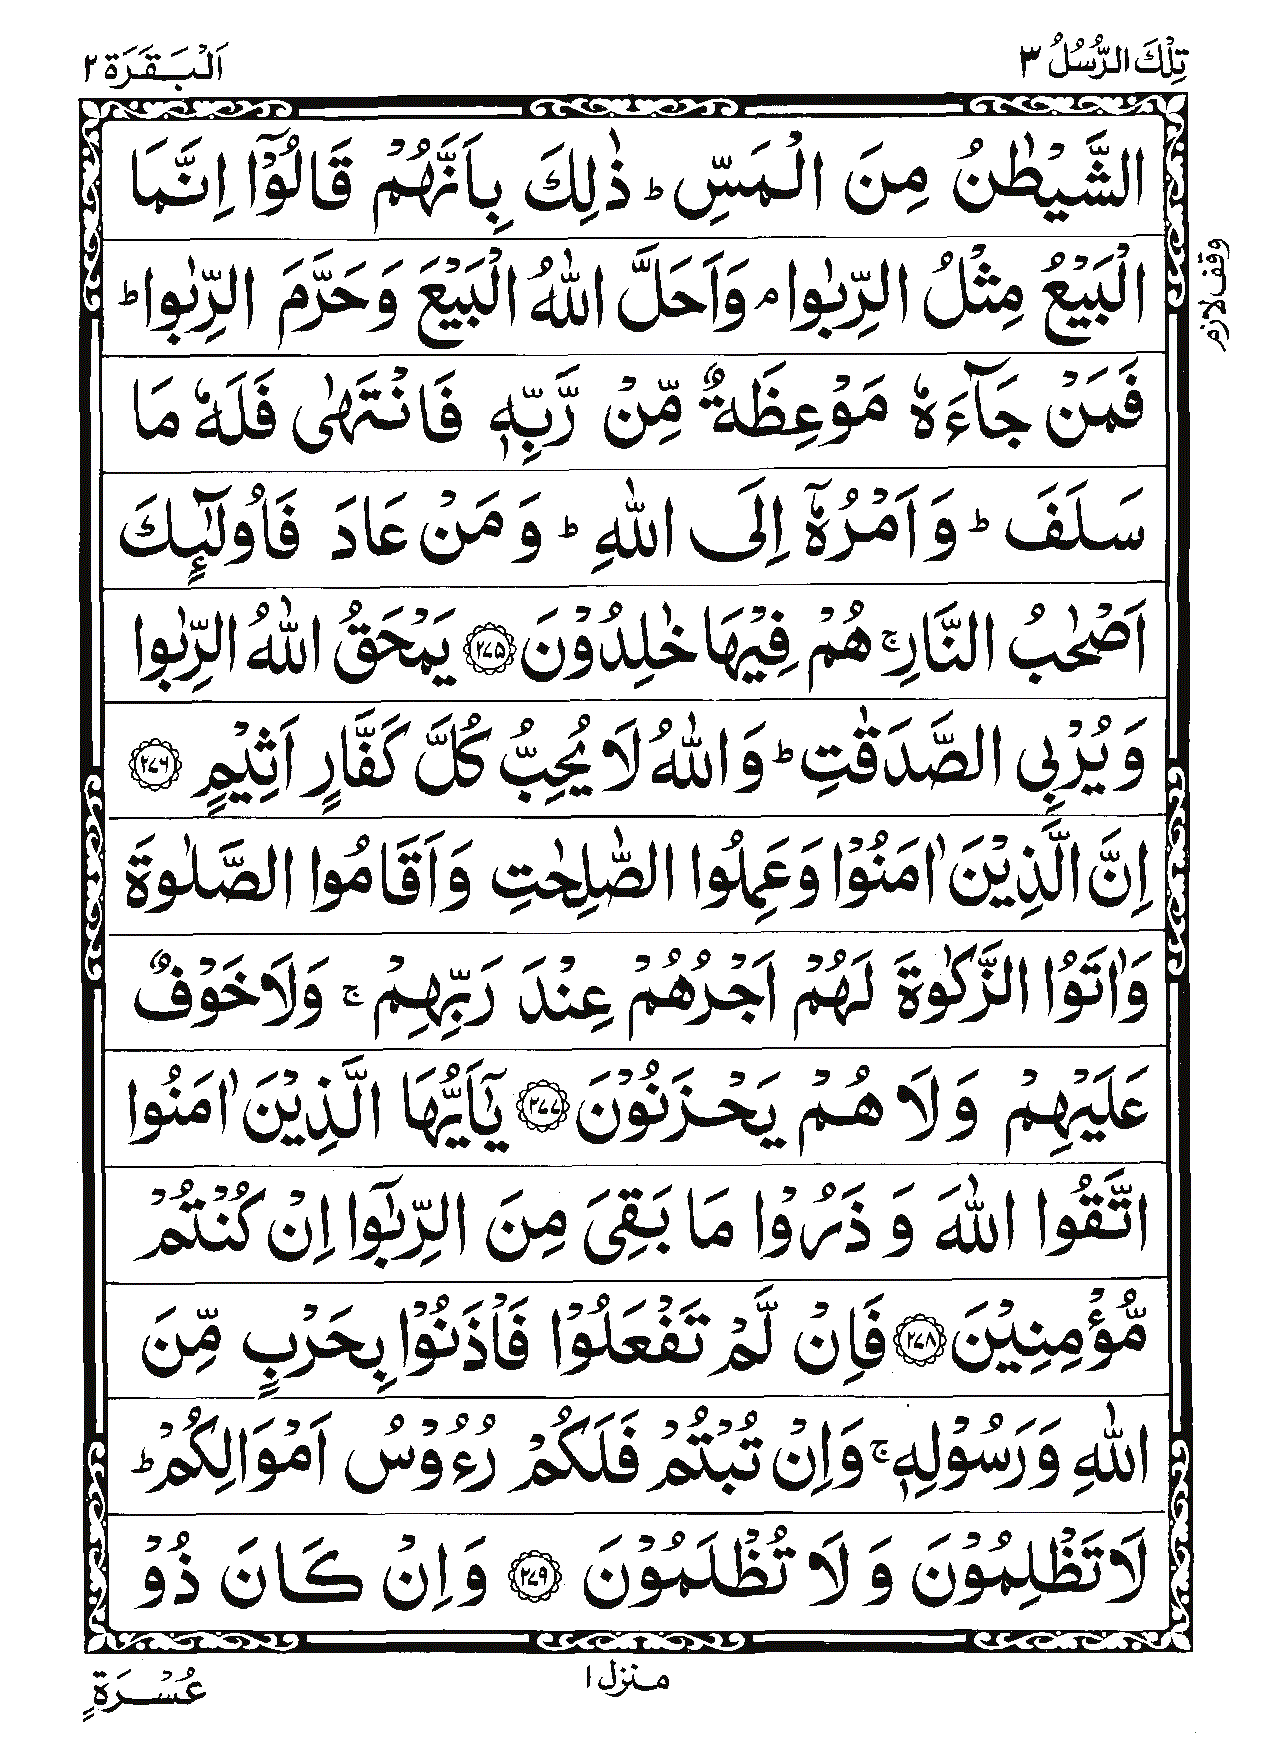 تِلْكَ الرُّسُلُ ٣
اَلْبَقَرَة ٢
الشَّيْطٰنُ مِنَ الْمَسِّ ؕ ذٰلِكَ بِاَنَّهُمْ قَالُوْۤا اِنَّمَا
الْبَيْعُ مِثْلُ الرِّبٰوا ۘ وَاَحَلَّ اللّٰهُ الْبَيْعَ وَحَرَّمَ الرِّبٰوا ؕ
وقف لازم
فَمَنْ جَآءَهٗ مَوْعِظَةٌ مِّنْ رَّبِّهٖ فَانْتَهٰى فَلَهٗ مَا
سَلَفَ ؕ وَ اَمْرُهٗۤ اِلَى اللّٰهِ ؕ وَ مَنْ عَادَ فَاُولٰٓئِكَ
اَصْحٰبُ النَّارِ ۚ هُمْ فِيْهَا خٰلِدُوْنَ ﴿۲۷۵﴾ يَمْحَقُ اللّٰهُ الرِّبٰوا
وَ يُرْبِي الصَّدَقٰتِ ؕ وَ اللّٰهُ لَا يُحِبُّ كُلَّ كَفَّارٍ اَثِيْمٍ ﴿۲۷۶﴾
اِنَّ الَّذِيْنَ اٰمَنُوْا وَعَمِلُوا الصّٰلِحٰتِ وَاَقَامُوا الصَّلٰوةَ
وَاٰتَوُا الزَّكٰوةَ لَهُمْ اَجْرُهُمْ عِنْدَ رَبِّهِمْ ۚ وَلَا خَوْفٌ
عَلَيْهِمْ وَ لَا هُمْ يَحْزَنُوْنَ ﴿۲۷۷﴾ يٰۤاَيُّهَا الَّذِيْنَ اٰمَنُوا
اتَّقُوا اللّٰهَ وَ ذَرُوْا مَا بَقِيَ مِنَ الرِّبٰۤوا اِنْ كُنْتُمْ
مُّؤْمِنِيْنَ ﴿۲۷۸﴾ فَاِنْ لَّمْ تَفْعَلُوْا فَاْذَنُوْا بِحَرْبٍ مِّنَ
اللّٰهِ وَرَسُوْلِهٖ ۚ وَاِنْ تُبْتُمْ فَلَكُمْ رُءُوْسُ اَمْوَالِكُمْ ؕ
لَا تَظْلِمُوْنَ وَ لَا تُظْلَمُوْنَ ﴿۲۷۹﴾ وَ اِنْ كَانَ ذُوْ
منزل ١
عُسْرَةٍ